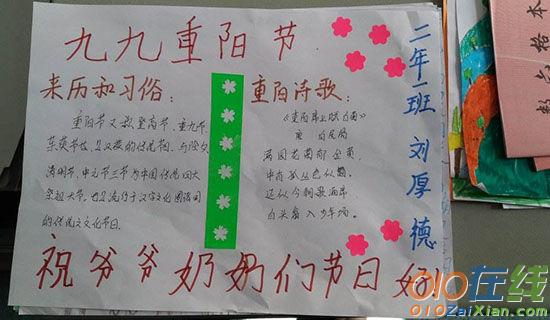 九九重阳节
来历和习俗:
重阳节又称登高节、重九节、
茱萸节等,是汉族的传统节日。与除夕、
清明节、中元节三节为中国传统四大
祭祖大节。也是流行于汉字文化圈诸国
的传统文化节日。
重阳诗歌:
唐
满园花菊郁金黄,
中有孤丛色似霜。
还似今朝歌酒席,
白头翁入少年场。
二年一班 刘厚德
祝爷爷奶奶们节日好
010在线
010ZaiXian.com